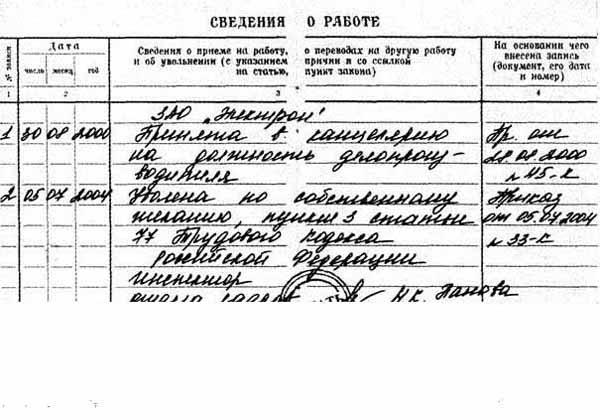 СВЕДЕНИЯ О РАБОТЕ
№ записи
Дата
число месяц год
Сведения о приеме на работу, о переводах на другую работу
и об увольнении (с указанием причин и со ссылкой
на статью, пункт закона)
На основании чего
внесена запись
(документ, его дата
и номер)
1 2 3 4
ЗАО „Электрон"
1 30 08 2000 Принята в канцелярию Пр. от
на должность делопроиз- 28.08.2000
водителя №45-к
2 05 07 2004 Уволена по собственному Приказ
желанию, пункт 3 статьи от 05.07.2004
77 Трудового Кодекса №33-к
Российской Федерации
инспектор
отдела кадров Н.К. Панова